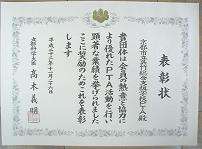 表彰状
京都市立
貴団体は会員の熱意と協力に
より優れたPTA活動を行い
顕著な業績を挙げられました
ここに奨励のためこれを表彰
します
平成二十三年十一月二十六日
文部科学大臣
髙木義明